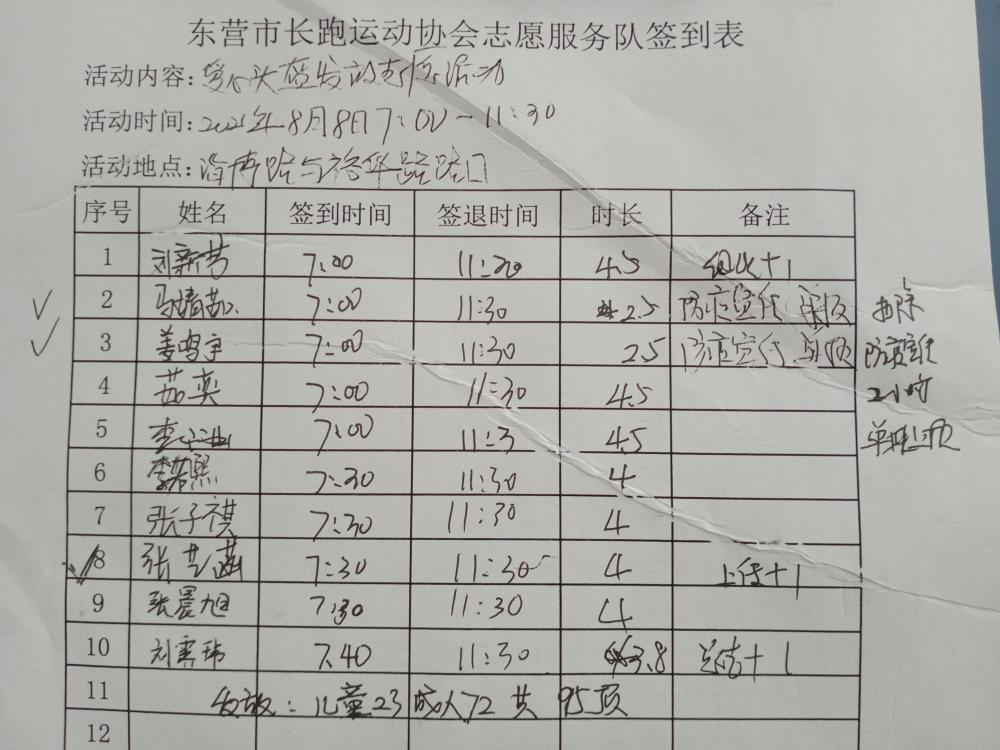 东营市长跑运动协会志愿服务队签到表
活动内容: 头盔发放 活动
活动时间: 2021年8月8日7:00-11:30
活动地点: 淄博路与裕华路路口
序号 姓名 签到时间 签退时间 时长 备注
1 刘新 7:00 11:30 4.5 组织+1
2 马 7:00 11:30 2.5 防疫宣传 单项 扣除
3 姜鸣宇 7:00 11:30 2.5 防疫宣传 单项 防疫宣传
4 茹奕 7:00 11:30 4.5 2小时
5 李 7:00 11:3 4.5 单独立项
6 李 熙 7:30 11:30 4
7 张子祺 7:30 11:30 4
8 张艺涵 7:30 11:30 4 上传+1
9 张晨旭 7:30 11:30 4
10 刘 玮 7.40 11:30 3.8 总结+1
11 发放: 儿童23 成人72 共 95顶
12